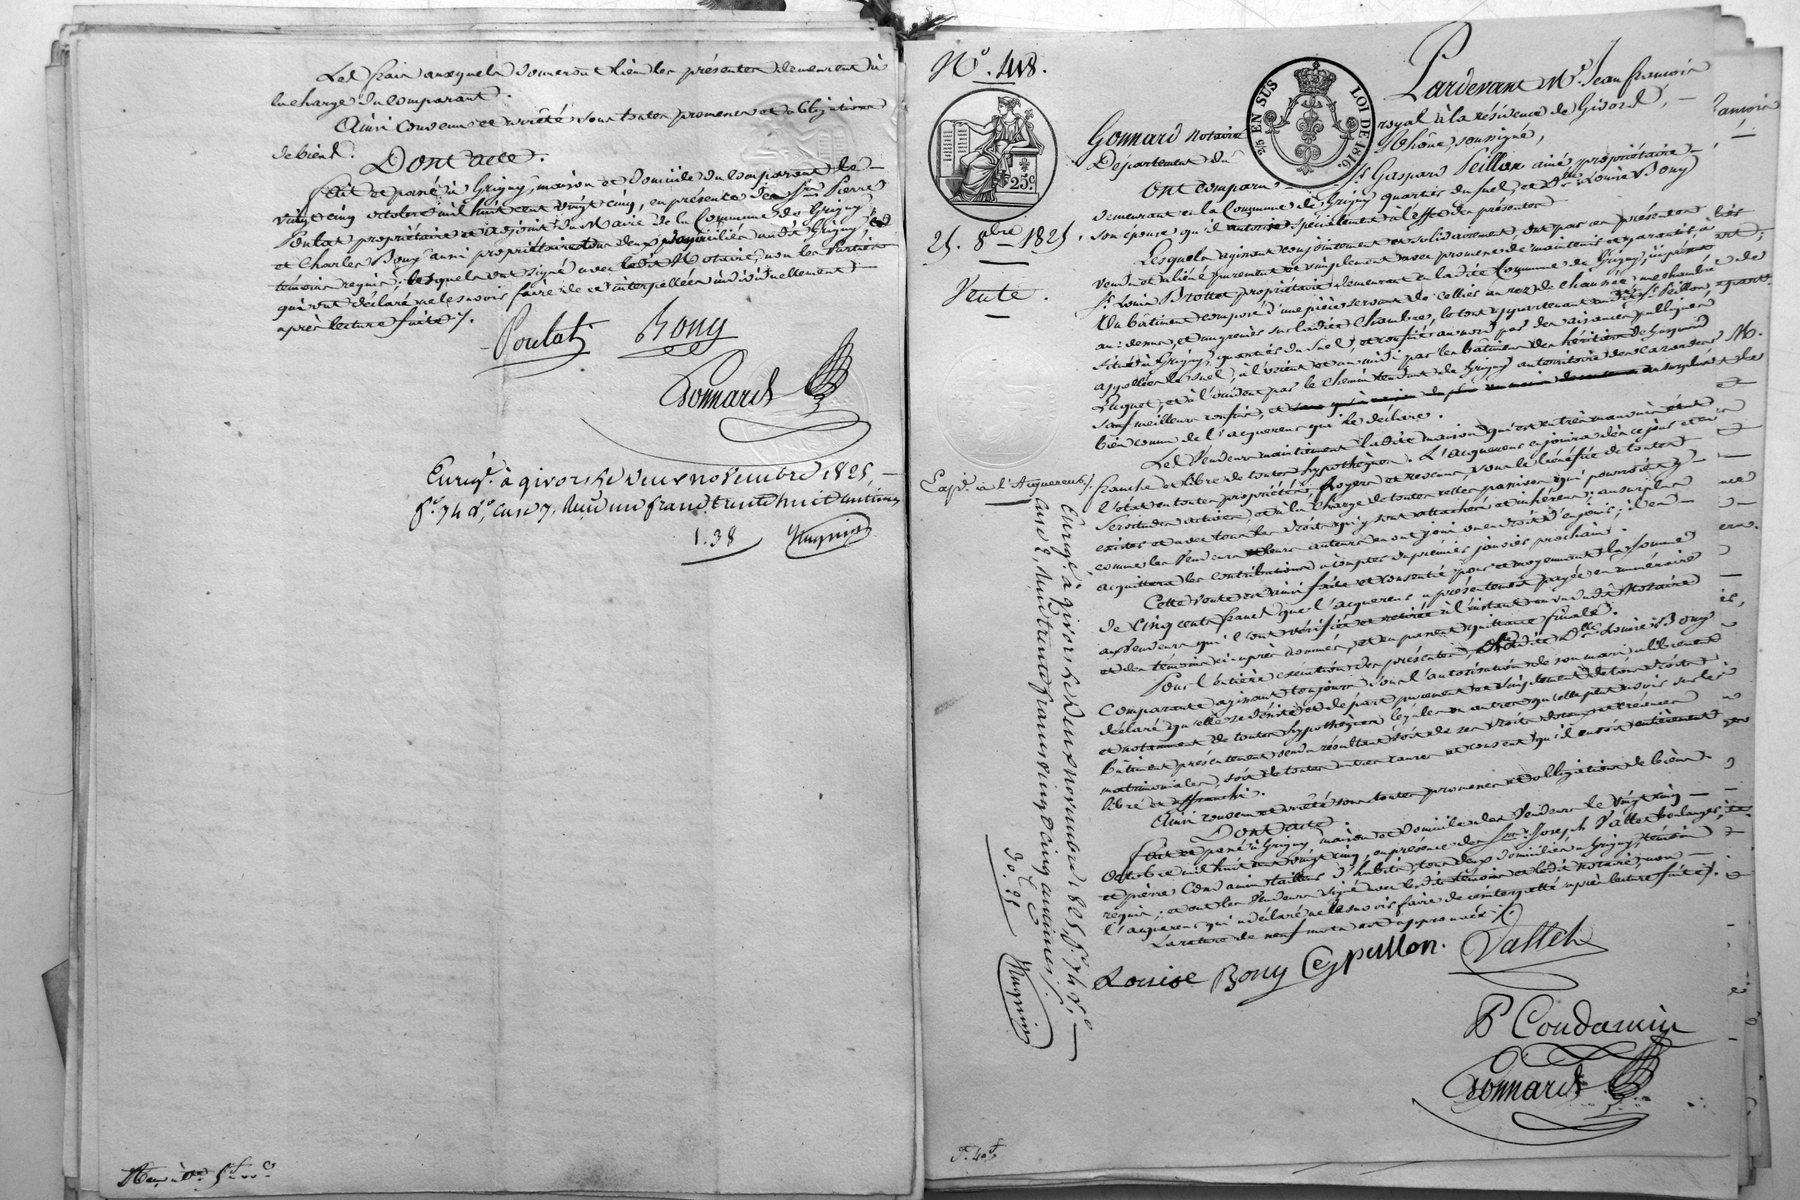 Les frais auxquels donneront lieu les présentes demeurent à
la charge du comparant.
Ainsi convenu et arrêté sous toutes promesses et obligations
de biens.
Dont acte.
Fait et passé à Grigny, maison et domicile du comparant le
vingt cinq octobre mil huit cent vingt cinq, en présence des Srs Pierre
Poulat propriétaire et adjoint du Maire de la Commune de Grigny,
et Charles Bony aussi propriétaire tous deux domiciliés audit Grigny,
témoins requis; lesquels ont signé avec ledit Notaire, non les Parties
qui ont déclaré ne le savoir faire de ce interpellées individuellement
après lecture faite /.
Poulat Bony
Gonnard
Enreg.é à givors le deux novembre 1825,
f.o 74 v.o, case 7, Reçu un franc trente huit centimes
1.38 Hugnin
N.o 418.
25 c
25. 8bre 1825.
Vente.
Exp.é à l'Acquereur /.
Enreg.é à givors le deux novembre 1825, f.o 74 v.o,
case 2, Reçu trente francs vingt cinq centimes /.
30.25 Hugnin
EN SUS
LOI DE 1816.
Pardevant M.e Jean françois
Gonnard Notaire royal à la résidence de Givord,
Département du Rhône soussigné,
Ont comparu Sr Gaspard Peillon ainé, propriétaire
demeurant en la Commune de Grigny quartier du Suel, et D.e Louise Bony
son épouse qu'il autorise spécialement à l'effet des présentes
Lesquels agissant conjointement et solidairement, ont par ces présentes
vendu et aliéné purement et simplement avec promesse de maintenir et garantir, à
Sr Louis Brottet propriétaire demeurant en ladite Commune de Grigny,
Un bâtiment composé d'une pièce servant de cellier au rez de chaussée, une chambre
au dessus, et un grenier sur ladite Chambre, le tout appartenant audit Sr Peillon,
situé à Grigny, quartier du Suel, et confiné au nord par des aisances publiques
appellées le Suel; à l'orient et au midi par les bâtimens des héritiers de
Luquet, et à l'occident par le Chemin tendant de Grigny au territoire des
sauf meilleurs confins, et
bien connu de l'acquereur qui le déclare.
Les Vendeurs maintiennent ladite maison qui est en très mauvais état
franche et libre de toutes hypothèques. L'acquereur en jouira dès ce jour et en
l'état en toute propriété,
servitudes actives, et à la charge de toutes celles passives qui pourroient y
exister et avec tous les droits qui y sont attachés et inhérens; au surplus
comme les Vendeurs et leurs auteurs en ont joui ou eu droit d'en jouir;
acquittera les contributions à compter du premier janvier prochain.
Cette vente est ainsi faite et consentie pour et moyennant la somme
de Cinq cents francs que l'acquereur a présentement payée en numéraire
aux Vendeurs qui l'ont vérifiée et retirée à l'instant au vu dudit Notaire
et des témoins ci après nommés, et en passent quittance finale.
Pour l'entière exécution des présentes, ladite D.e Louise Bony
Comparante agissant toujours sous l'autorisation de son mari a librement
déclaré qu'elle se désiste et départ purement et simplement de tous droits
et notamment de toutes hypothèques légales ou autres qu'elle peut avoir sur le
bâtiment présentement vendu résultant soit de ses droits dotaux et créances
matrimoniales, soit de toutes autres causes et consent qu'il en soit entièrement
libre et affranchi.
Ainsi convenu et arrêté sous toutes promesses et obligations de biens
Dont acte.
Fait et passé à Grigny, maison et domicile des Vendeurs le vingt cinq
Octobre mil huit cent vingt cinq, en présence des Srs Joseph Vallet boulanger,
et pierre Condamin tailleur d'habits, tous deux domiciliés à Grigny, témoins
requis; et ont les Vendeurs signé avec lesdits témoins et ledit Notaire, non
l'acquereur qui a déclaré ne le savoir faire de ce interpellé après lecture faite /.
La rature de neuf mots est approuvée /.
Louise Bony G peillon. Vallet
P Condamin
Gonnard